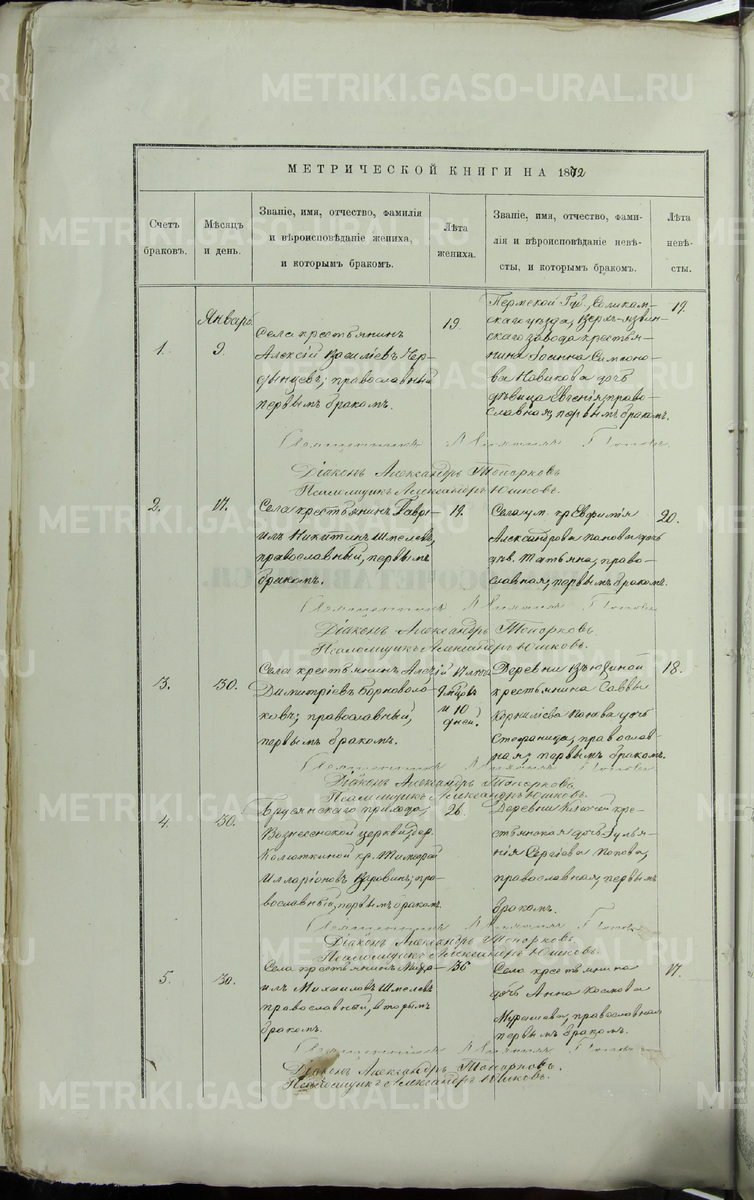 МЕТРИЧЕСКОЙ КНИГИ НА 1872
Счетъ браковъ.
Мѣсяцъ и день.
Званіе, имя, отчество, фамилія
и вѣроисповѣданіе жениха,
и которымъ бракомъ.
Лѣта жениха.
Званіе, имя, отчество, фами-
лія и вѣроисповѣданіе невѣ-
сты, и которымъ бракомъ.
Лѣта невѣ-
сты.
Январь
1.
9.
Села крестьянинъ
Алексій Василіевъ Чер-
дынцевъ; православный
первымъ бракомъ.
19.
Пермской Губ., Соликам-
скаго уѣзда, Верх-язвин-
скаго завода крестья-
нина Іоанна Симеоно-
ва Новикова дочь
дѣвица Евгенія, право-
славная, первымъ бракомъ.
19.
Священникъ Попов
Діаконъ Александръ Топорковъ
Псаломщикъ Александръ Юшковъ.
2.
17.
Села крестьянинъ Гаврі-
илъ Никитинъ Шмелевъ,
православный, первымъ
бракомъ.
19.
Села ум. кр. Евфимія
Александрова Попова дочь
дѣв. Татьяна, право-
славная, первымъ бракомъ.
20.
Священникъ Попов
Діаконъ Александръ Топорковъ.
Псаломщикъ Александръ Юшковъ.
3.
30.
Села крестьянинъ Алексій
Димитріевъ Борноволо-
ковъ; православный,
первымъ бракомъ.
17 лѣтъ
9 мѣсцовъ
и 10
дней.
Деревни
крестьянина Саввы
Корнилева Попова дочь
Стефанида, православ-
ная, первымъ бракомъ.
18.
Священникъ Попов
Діаконъ Александръ Топорковъ.
Псаломщикъ Александръ Юшковъ.
4.
30.
Брусянскаго прихода,
Вознесенской церкви, дер.
Колюткиной кр. Тимофей
Илларіоновъ Вяровинъ, пра-
вославный, первымъ бракомъ.
26.
Деревни Ключей кре-
стьянская дочь Іулья-
нія Сергіева Попова,
православная, первымъ
бракомъ.
Священникъ Попов
Діаконъ Александръ Топорковъ
Псаломщикъ Александръ Юшковъ.
5.
30.
Села крестьянинъ
Михаиловъ Шмелевъ
православный, вторымъ
бракомъ.
36
Села крестьянина
дочь Анна Козмова
Мурашева, православная
первымъ бракомъ.
17.
Священникъ Попов
Діаконъ Александръ Топорковъ.
Псаломщикъ Александръ Юшковъ.
METRIKI.GASO-URAL.RU